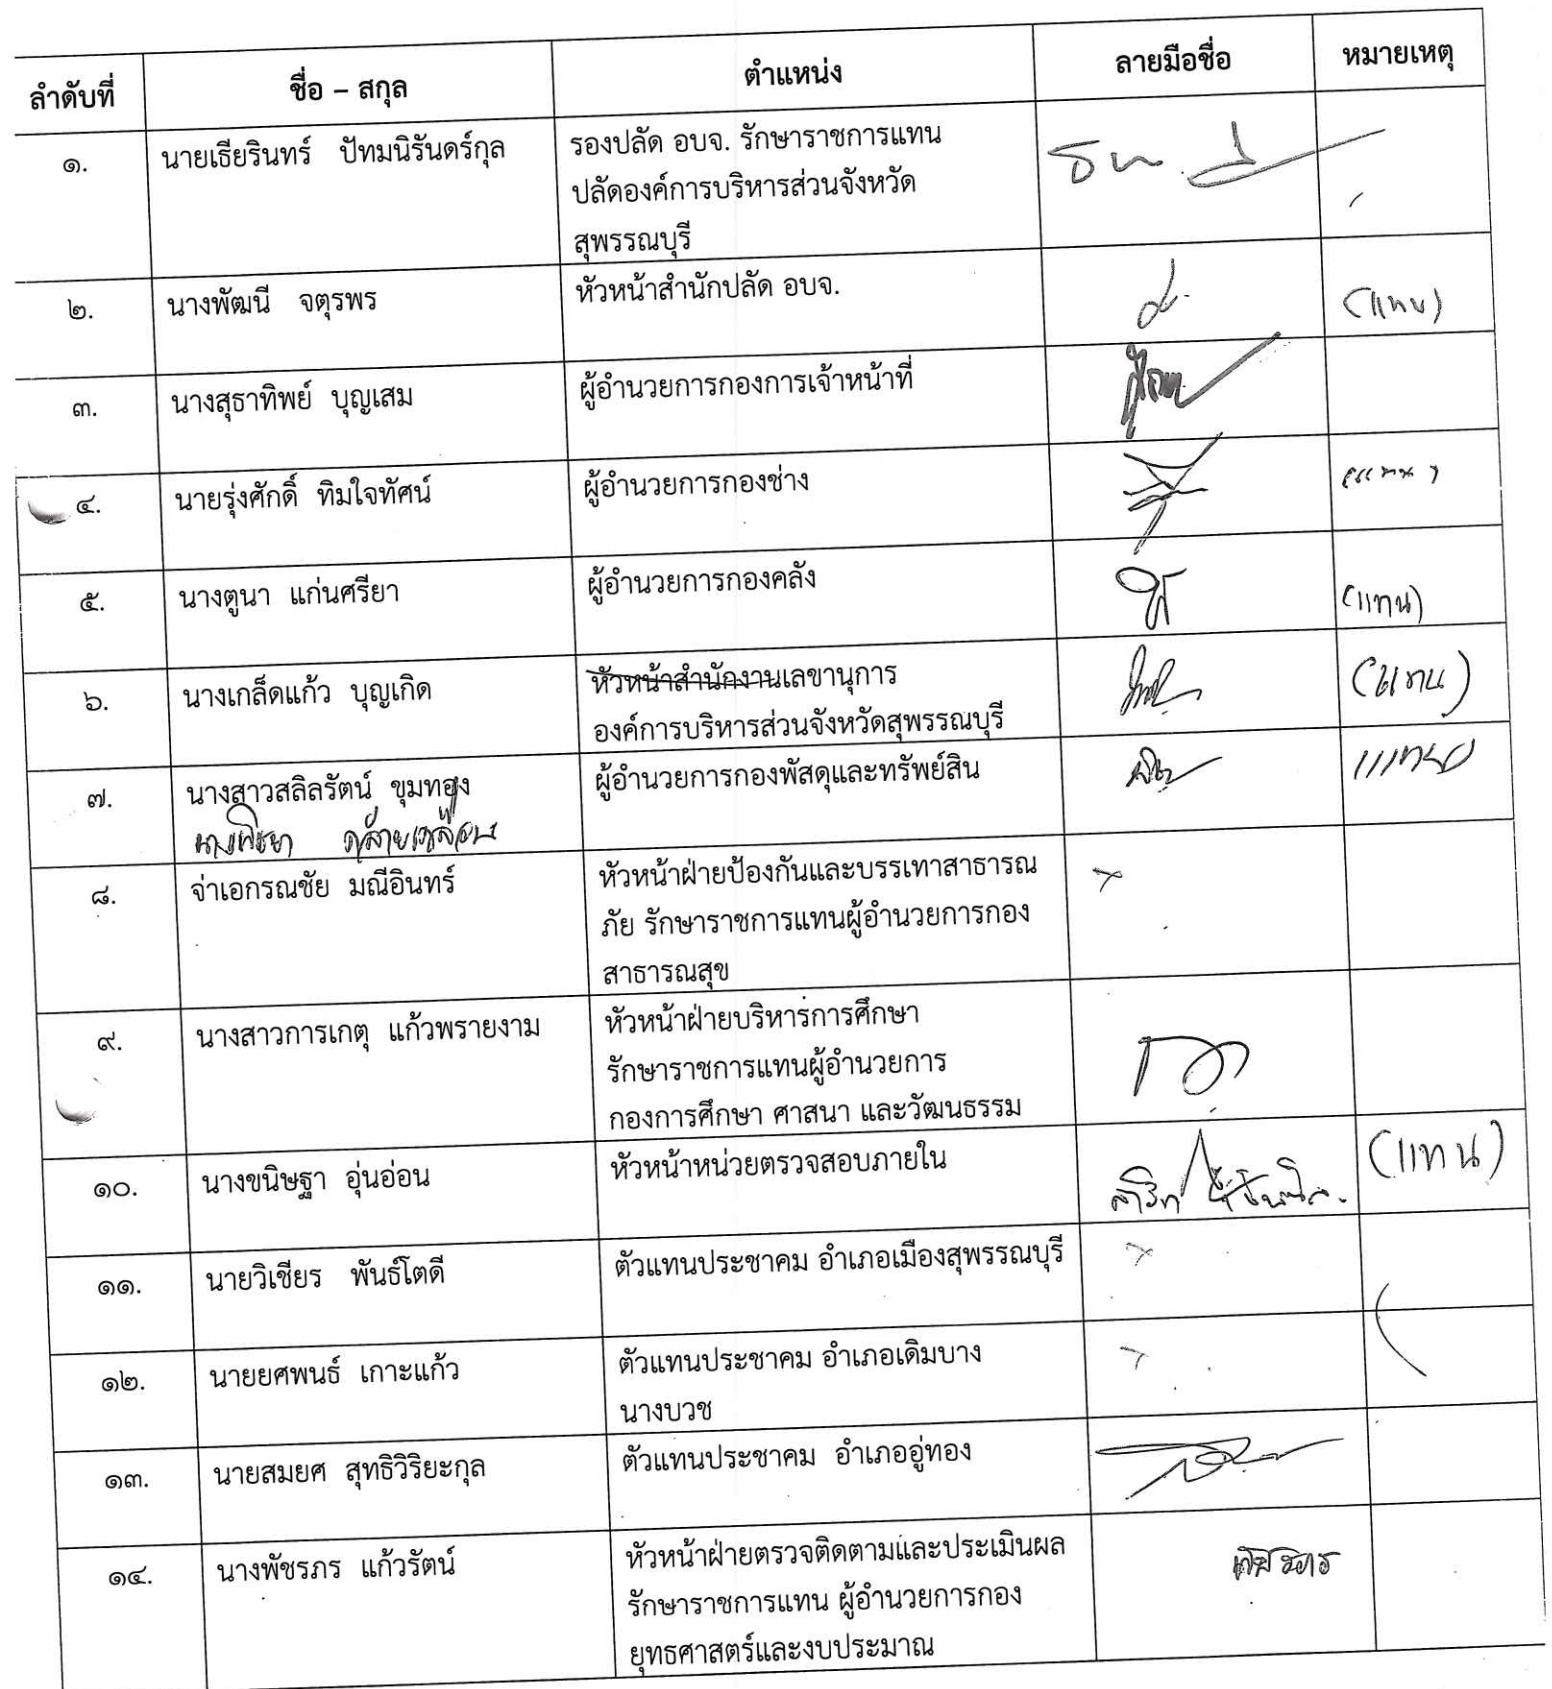 ลำดับที่ ชื่อ – สกุล ตำแหน่ง ลายมือชื่อ หมายเหตุ
๑. นายเธียรินทร์ ปัทมนิรันดร์กุล รองปลัด อบจ. รักษาราชการแทน
ปลัดองค์การบริหารส่วนจังหวัด
สุพรรณบุรี
๒. นางพัฒนี จตุรพร หัวหน้าสำนักปลัด อบจ. (แทน)
๓. นางสุธาทิพย์ บุญเสม ผู้อำนวยการกองการเจ้าหน้าที่
๔. นายรุ่งศักดิ์ ทิมใจทัศน์ ผู้อำนวยการกองช่าง
๕. นางตูนา แก่นศรียา ผู้อำนวยการกองคลัง (แทน)
๖. นางเกล็ดแก้ว บุญเกิด หัวหน้าสำนักงานเลขานุการ (แทน)
องค์การบริหารส่วนจังหวัดสุพรรณบุรี
๗. นางสาวสลิลรัตน์ ขุมทอง ผู้อำนวยการกองพัสดุและทรัพย์สิน แทน
๘. จ่าเอกรณชัย มณีอินทร์ หัวหน้าฝ่ายป้องกันและบรรเทาสาธารณ
ภัย รักษาราชการแทนผู้อำนวยการกอง
สาธารณสุข
๙. นางสาวการเกตุ แก้วพรายงาม หัวหน้าฝ่ายบริหารการศึกษา
รักษาราชการแทนผู้อำนวยการ
กองการศึกษา ศาสนา และวัฒนธรรม
๑๐. นางขนิษฐา อุ่นอ่อน หัวหน้าหน่วยตรวจสอบภายใน (แทน)
๑๑. นายวิเชียร พันธ์โตดี ตัวแทนประชาคม อำเภอเมืองสุพรรณบุรี
๑๒. นายยศพนธ์ เกาะแก้ว ตัวแทนประชาคม อำเภอเดิมบาง
นางบวช
๑๓. นายสมยศ สุทธิวิริยะกุล ตัวแทนประชาคม อำเภออู่ทอง
๑๔. นางพัชรภร แก้วรัตน์ หัวหน้าฝ่ายตรวจติดตามและประเมินผล
รักษาราชการแทน ผู้อำนวยการกอง
ยุทธศาสตร์และงบประมาณ